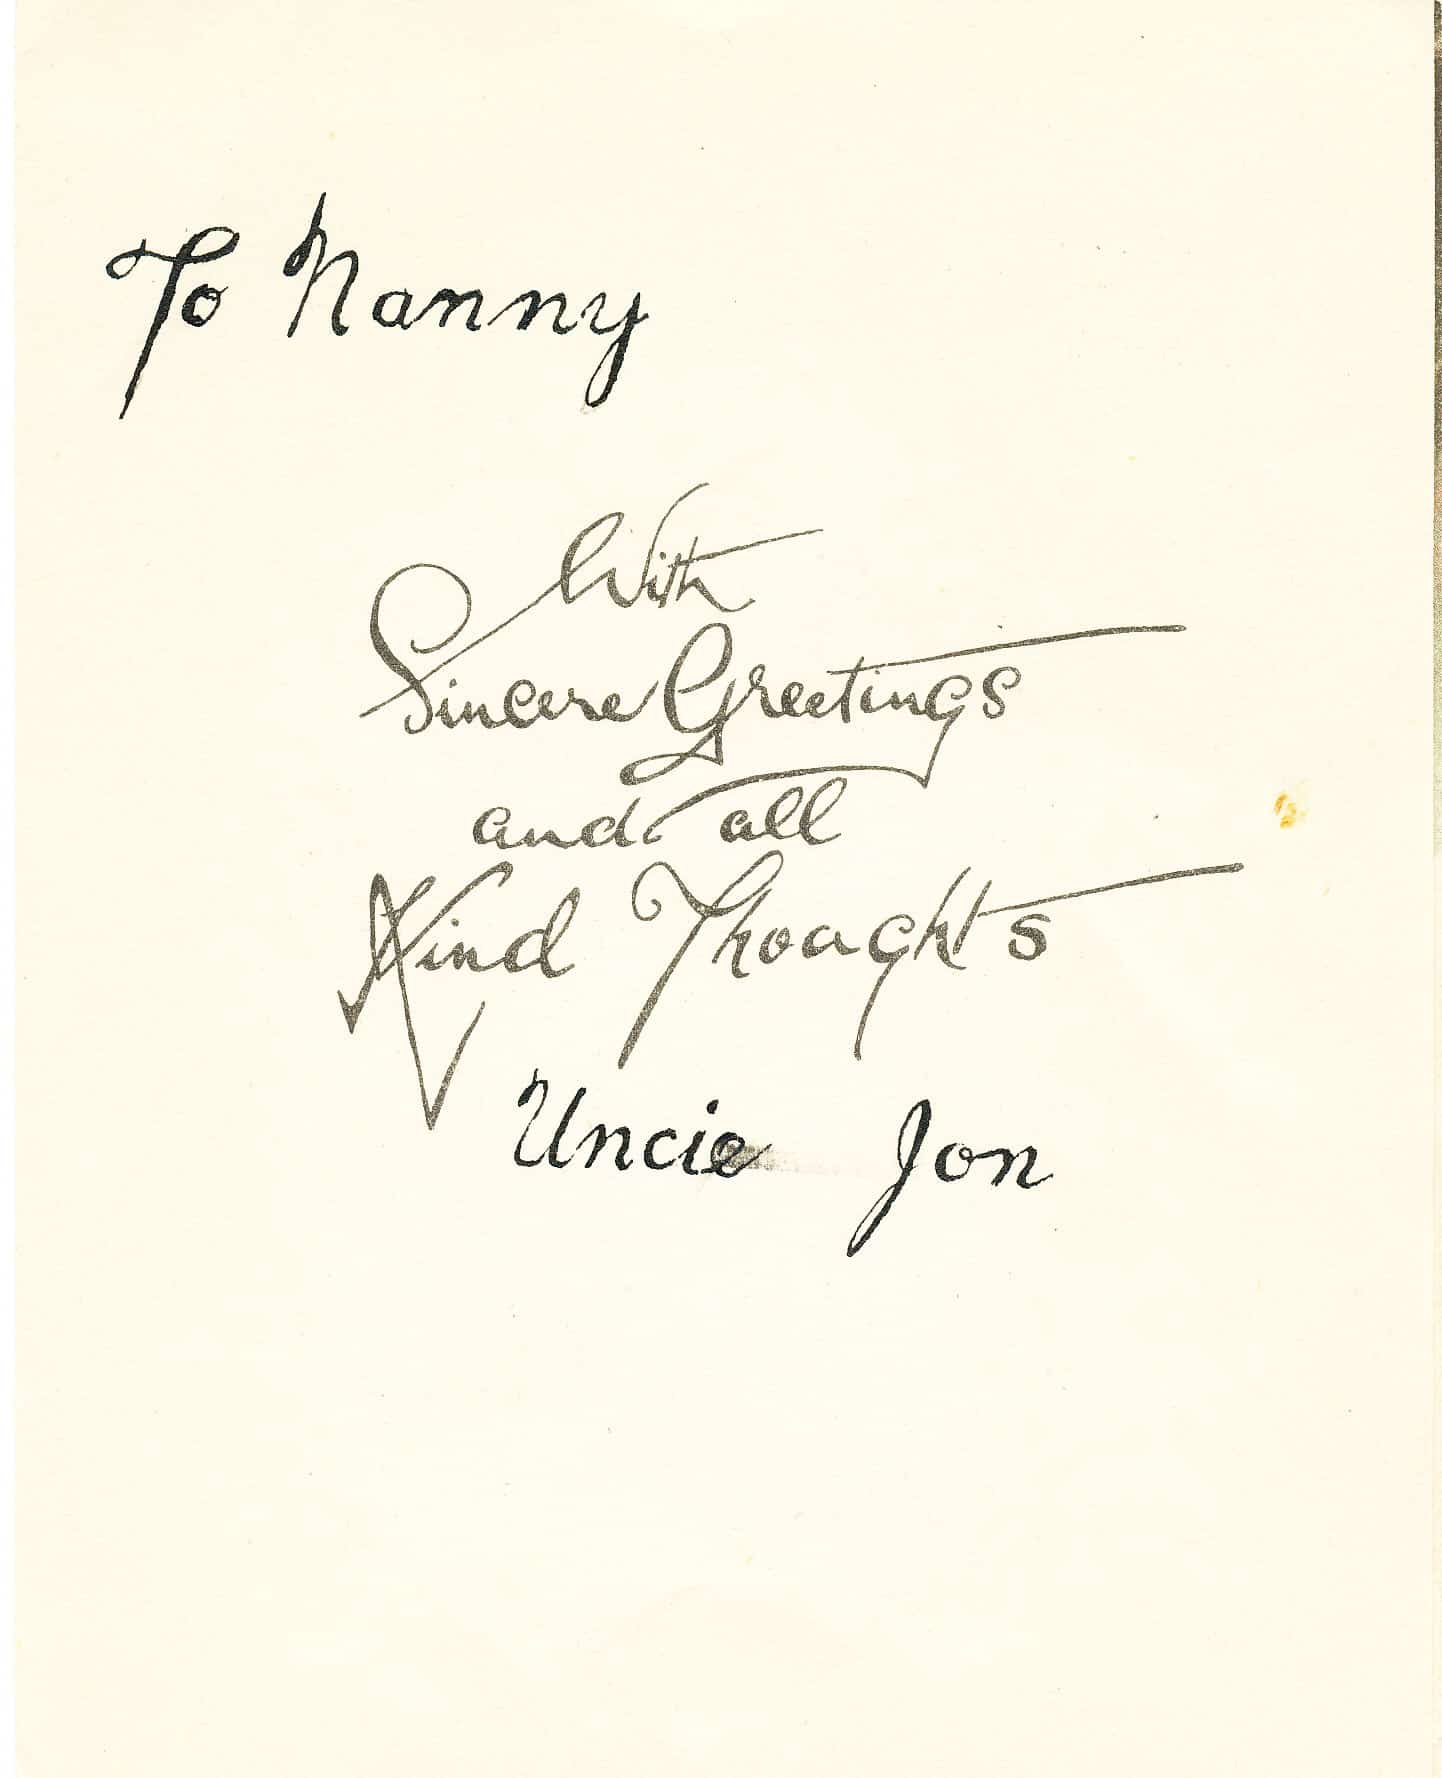 To Nanny
With
Sincere Greetings
and all
Kind Thoughts
Uncie Jon